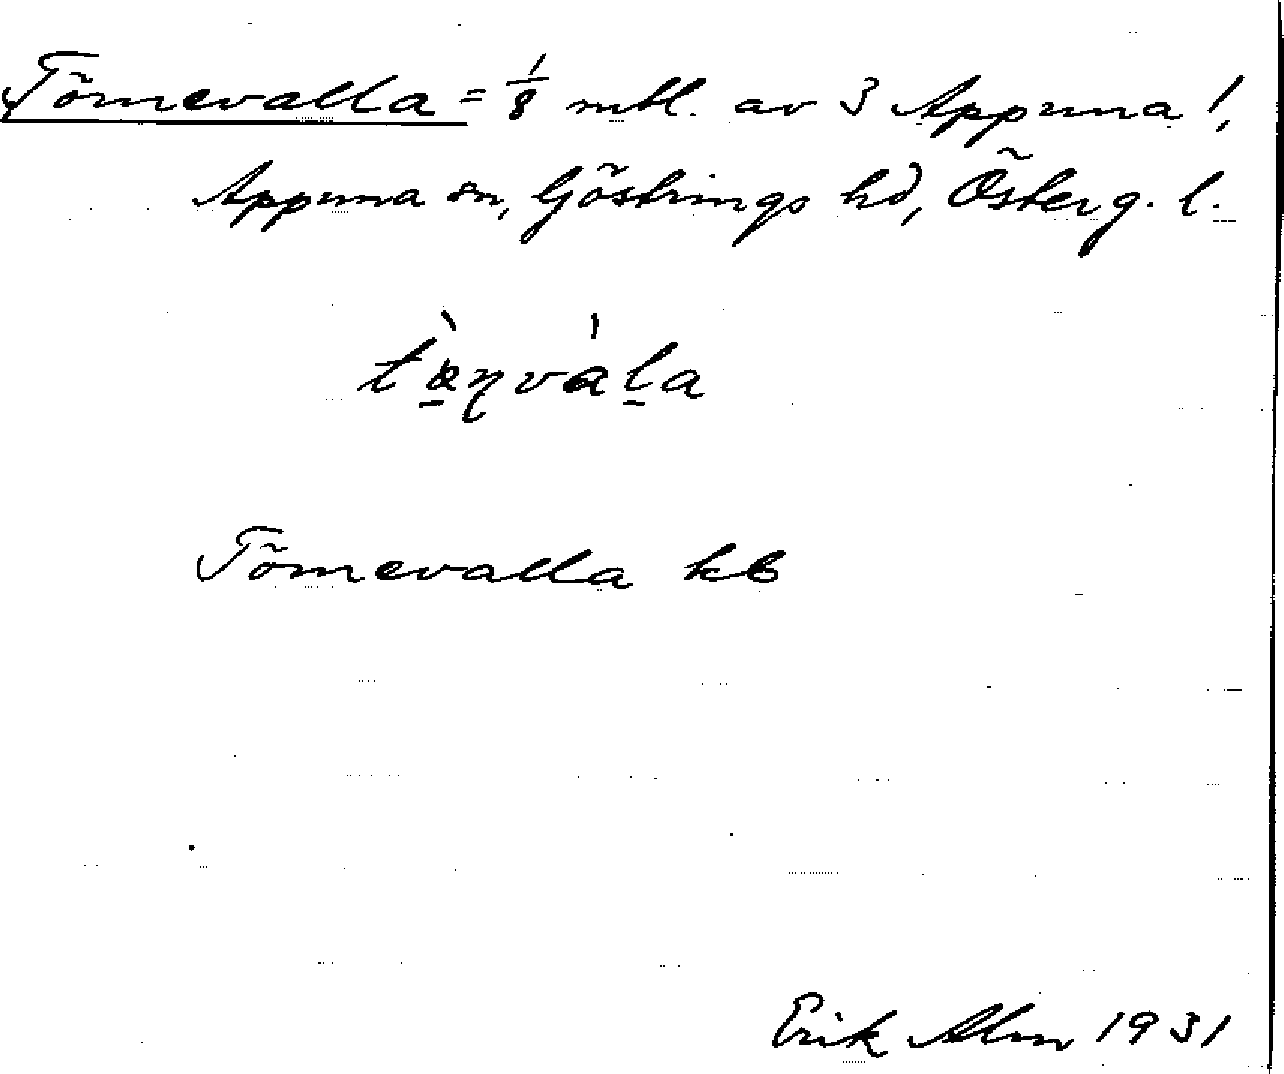 Törnevalla = 1/8 mtl. av 3 Appuna !,
Appuna sn, Göstrings hd, Österg. l.
Törnevalla kb
Erik Alm 1931